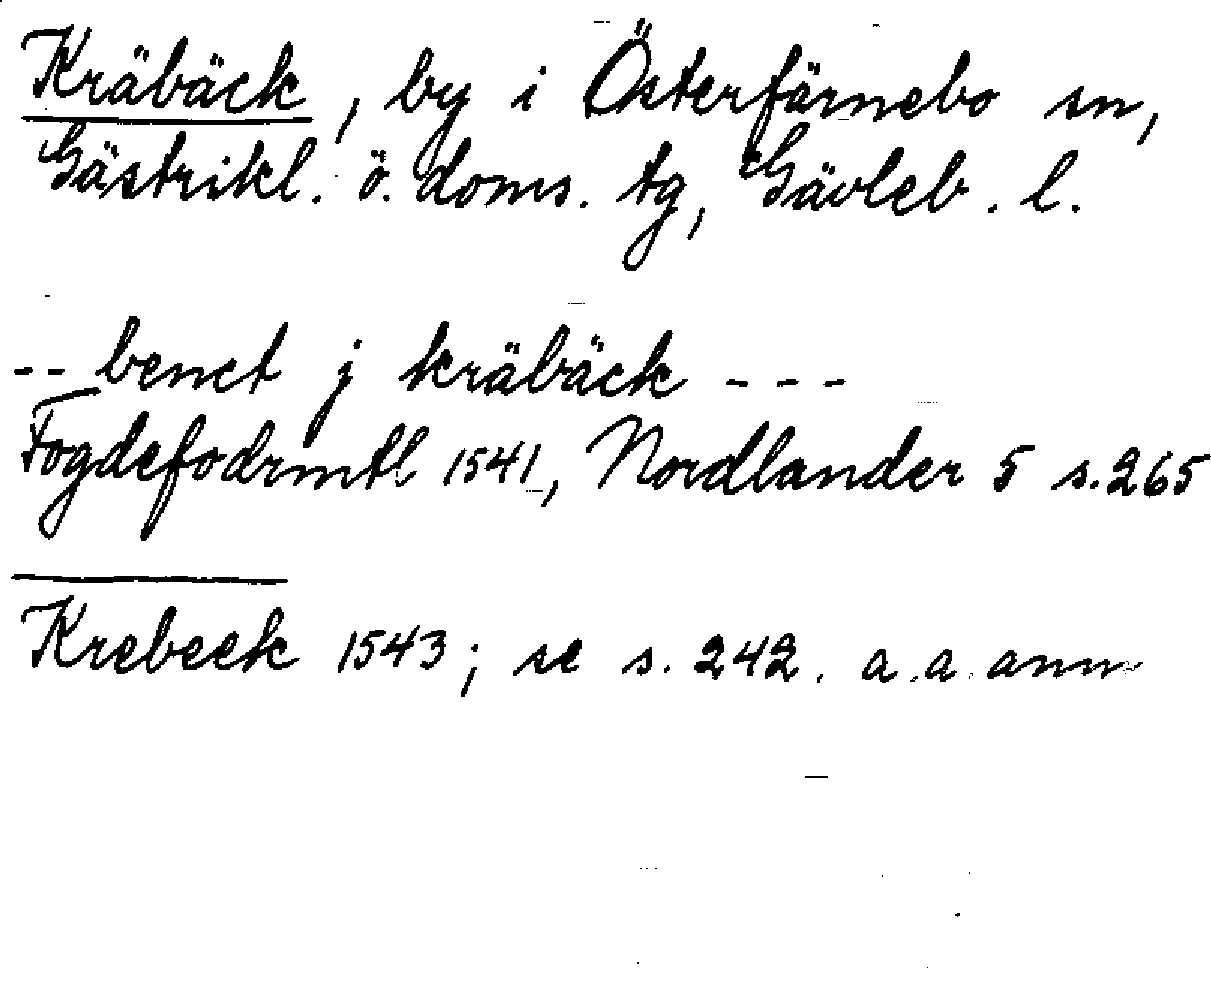 Kräbäck, by i Österfärnebo sn,
Gästrikl. ö. doms. tg, Gävleb. l.
-- benct j kräbäck ---
Fogdefodrmtl 1541, Nordlander 5 s. 265
Krebeek 1543; se s. 242. a.a. anm